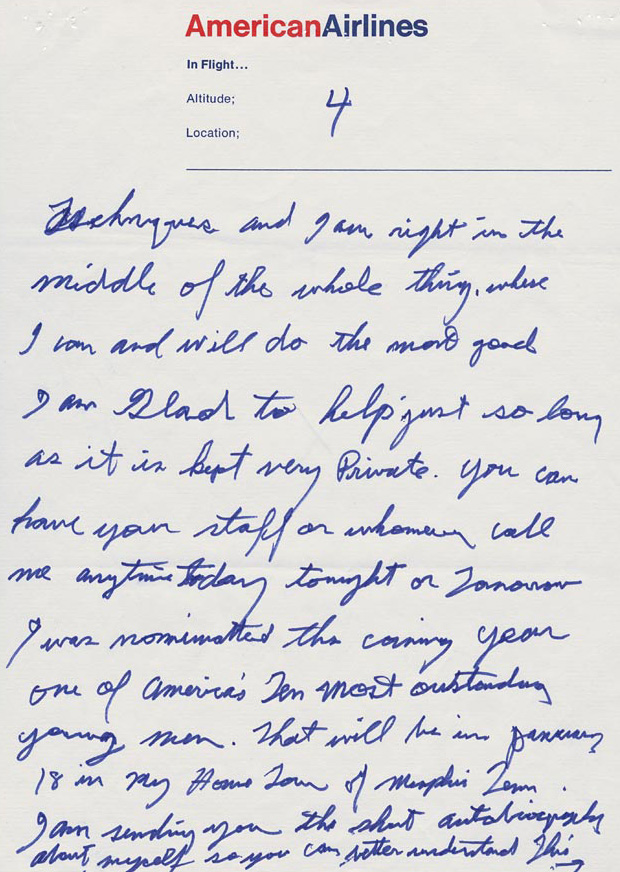 AmericanAirlines
In Flight...
Altitude;
4
Location;
Techniques and I am right in the
middle of the whole thing, where
I can and will do the most good
I am Glad to help just so long
as it is kept very Private. You can
have your staff or whomever call
me anytime today tonight or Tomorrow
I was nominatted the coming year
one of America's Ten most outstanding
young men. That will be in January
18 in my Home Town of Memphis Tenn.
I am sending you the short autobiography
about myself so you can better understand this